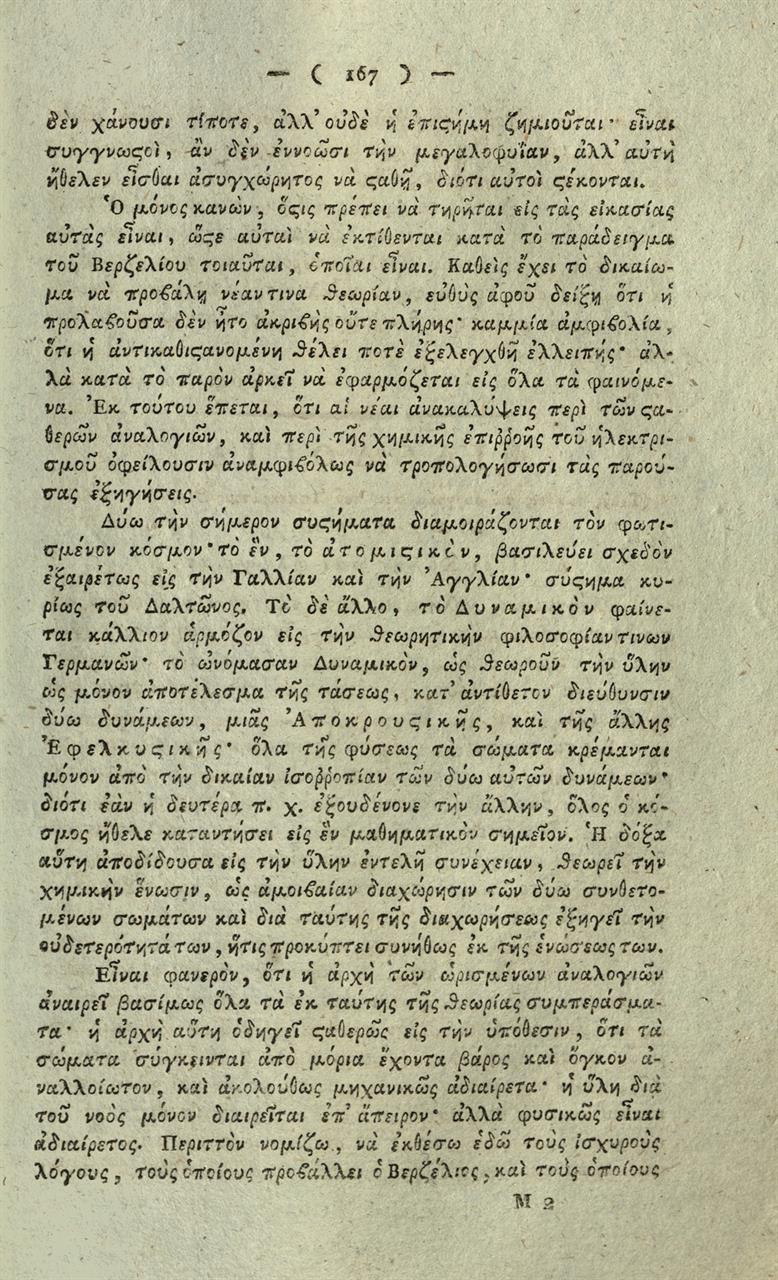 — ( 167 ) —
δὲν χάνουσι τίποτε, ἀλλ' οὐδὲ ἡ ἐπιϛήμη ζημιοῦται· εἶναι
συγγνωϛοὶ, ἂν δὲν ἐννοῶσι τὴν μεγαλοφυΐαν, ἀλλ' αὐτὴ
ἤθελεν εἶσθαι ἀσυγχώρητος νὰ ϛαθῇ, διότι αὐτοὶ ϛέκονται.
Ὁ μόνος κανὼν, ὅϛις πρέπει νὰ τηρῆται εἰς τὰς εἰκασίας
αὐτὰς εἶναι, ὥϛε αὐταὶ νὰ ἐκτίθενται κατὰ τὸ παράδειγμα
τοῦ Βερζελίου τοιαῦται, ὁποῖαι εἶναι. Καθεὶς ἔχει τὸ δικαίω-
μα νὰ προβάλῃ νέαν τινα θεωρίαν, εὐθὺς ἀφοῦ δείξῃ ὅτι ἡ
προλαβοῦσα δὲν ἦτο ἀκριβὴς οὔτε πλήρης· καμμία ἀμφιβολία,
ὅτι ἡ ἀντικαθιϛανομένη θέλει ποτὲ ἐξελεγχθῆ ἐλλειπής· ἀλ-
λὰ κατὰ τὸ παρὸν ἀρκεῖ νὰ ἐφαρμόζεται εἰς ὅλα τὰ φαινόμε-
να. Ἐκ τούτου ἕπεται, ὅτι αἱ νέαι ἀνακαλύψεις περὶ τῶν ϛα-
θερῶν ἀναλογιῶν, καὶ περὶ τῆς χημικῆς ἐπιῤῥοῆς τοῦ ἠλεκτρι-
σμοῦ ὀφείλουσιν ἀναμφιβόλως νὰ τροπολογήσωσι τὰς παρού-
σας ἐξηγήσεις.
Δύω τὴν σήμερον συϛήματα διαμοιράζονται τὸν φωτι-
σμένον κόσμον· τὸ ἓν, τὸ ἀτομιϛικὸν, βασιλεύει σχεδὸν
ἐξαιρέτως εἰς τὴν Γαλλίαν καὶ τὴν Ἀγγλίαν· σύϛημα κυ-
ρίως τοῦ Δαλτῶνος. Τὸ δὲ ἄλλο, τὸ Δυναμικὸν φαίνε-
ται κάλλιον ἁρμόζον εἰς τὴν θεωρητικὴν φιλοσοφίαν τινων
Γερμανῶν· τὸ ὠνόμασαν Δυναμικὸν, ὡς θεωροῦν τὴν ὕλην
ὡς μόνον ἀποτέλεσμα τῆς τάσεως, κατ' ἀντίθετον διεύθυνσιν
δύω δυνάμεων, μιᾶς Ἀποκρουϛικῆς, καὶ τῆς ἄλλης
Ἐφελκυϛικῆς· ὅλα τῆς φύσεως τὰ σώματα κρέμανται
μόνον ἀπὸ τὴν δικαίαν ἰσοῤῥοπίαν τῶν δύω αὐτῶν δυνάμεων·
διότι ἐὰν ἡ δευτέρα π. χ. ἐξουδένονε τὴν ἄλλην, ὅλος ὁ κό-
σμος ἤθελε καταντήσει εἰς ἓν μαθηματικὸν σημεῖον. Ἡ δόξα
αὕτη ἀποδίδουσα εἰς τὴν ὕλην ἐντελῆ συνέχειαν, θεωρεῖ τὴν
χημικὴν ἕνωσιν, ὡς ἀμοιβαίαν διαχώρησιν τῶν δύω συνθετο-
μένων σωμάτων καὶ διὰ ταύτης τῆς διαχωρήσεως ἐξηγεῖ τὴν
οὐδετερότητά των, ἥτις προκύπτει συνήθως ἐκ τῆς ἑνώσεως των.
Εἶναι φανερὸν, ὅτι ἡ ἀρχὴ τῶν ὡρισμένων ἀναλογιῶν
ἀναιρεῖ βασίμως ὅλα τὰ ἐκ ταύτης τῆς θεωρίας συμπεράσμα-
τα· ἡ ἀρχὴ αὕτη ὁδηγεῖ ϛαθερῶς εἰς τὴν ὑπόθεσιν, ὅτι τὰ
σώματα σύγκεινται ἀπὸ μόρια ἔχοντα βάρος καὶ ὄγκον ἀ-
ναλλοίωτον, καὶ ἀκολούθως μηχανικῶς ἀδιαίρετα· ἡ ὕλη διὰ
τοῦ νοὸς μόνον διαιρεῖται ἐπ' ἄπειρον· ἀλλὰ φυσικῶς εἶναι
ἀδιαίρετος. Περιττὸν νομίζω, νὰ ἐκθέσω ἐδῶ τοὺς ἰσχυροὺς
λόγους, τοὺς ὁποίους προβάλλει ὁ Βερζέλιος, καὶ τοὺς ὁποίους
Μ 2